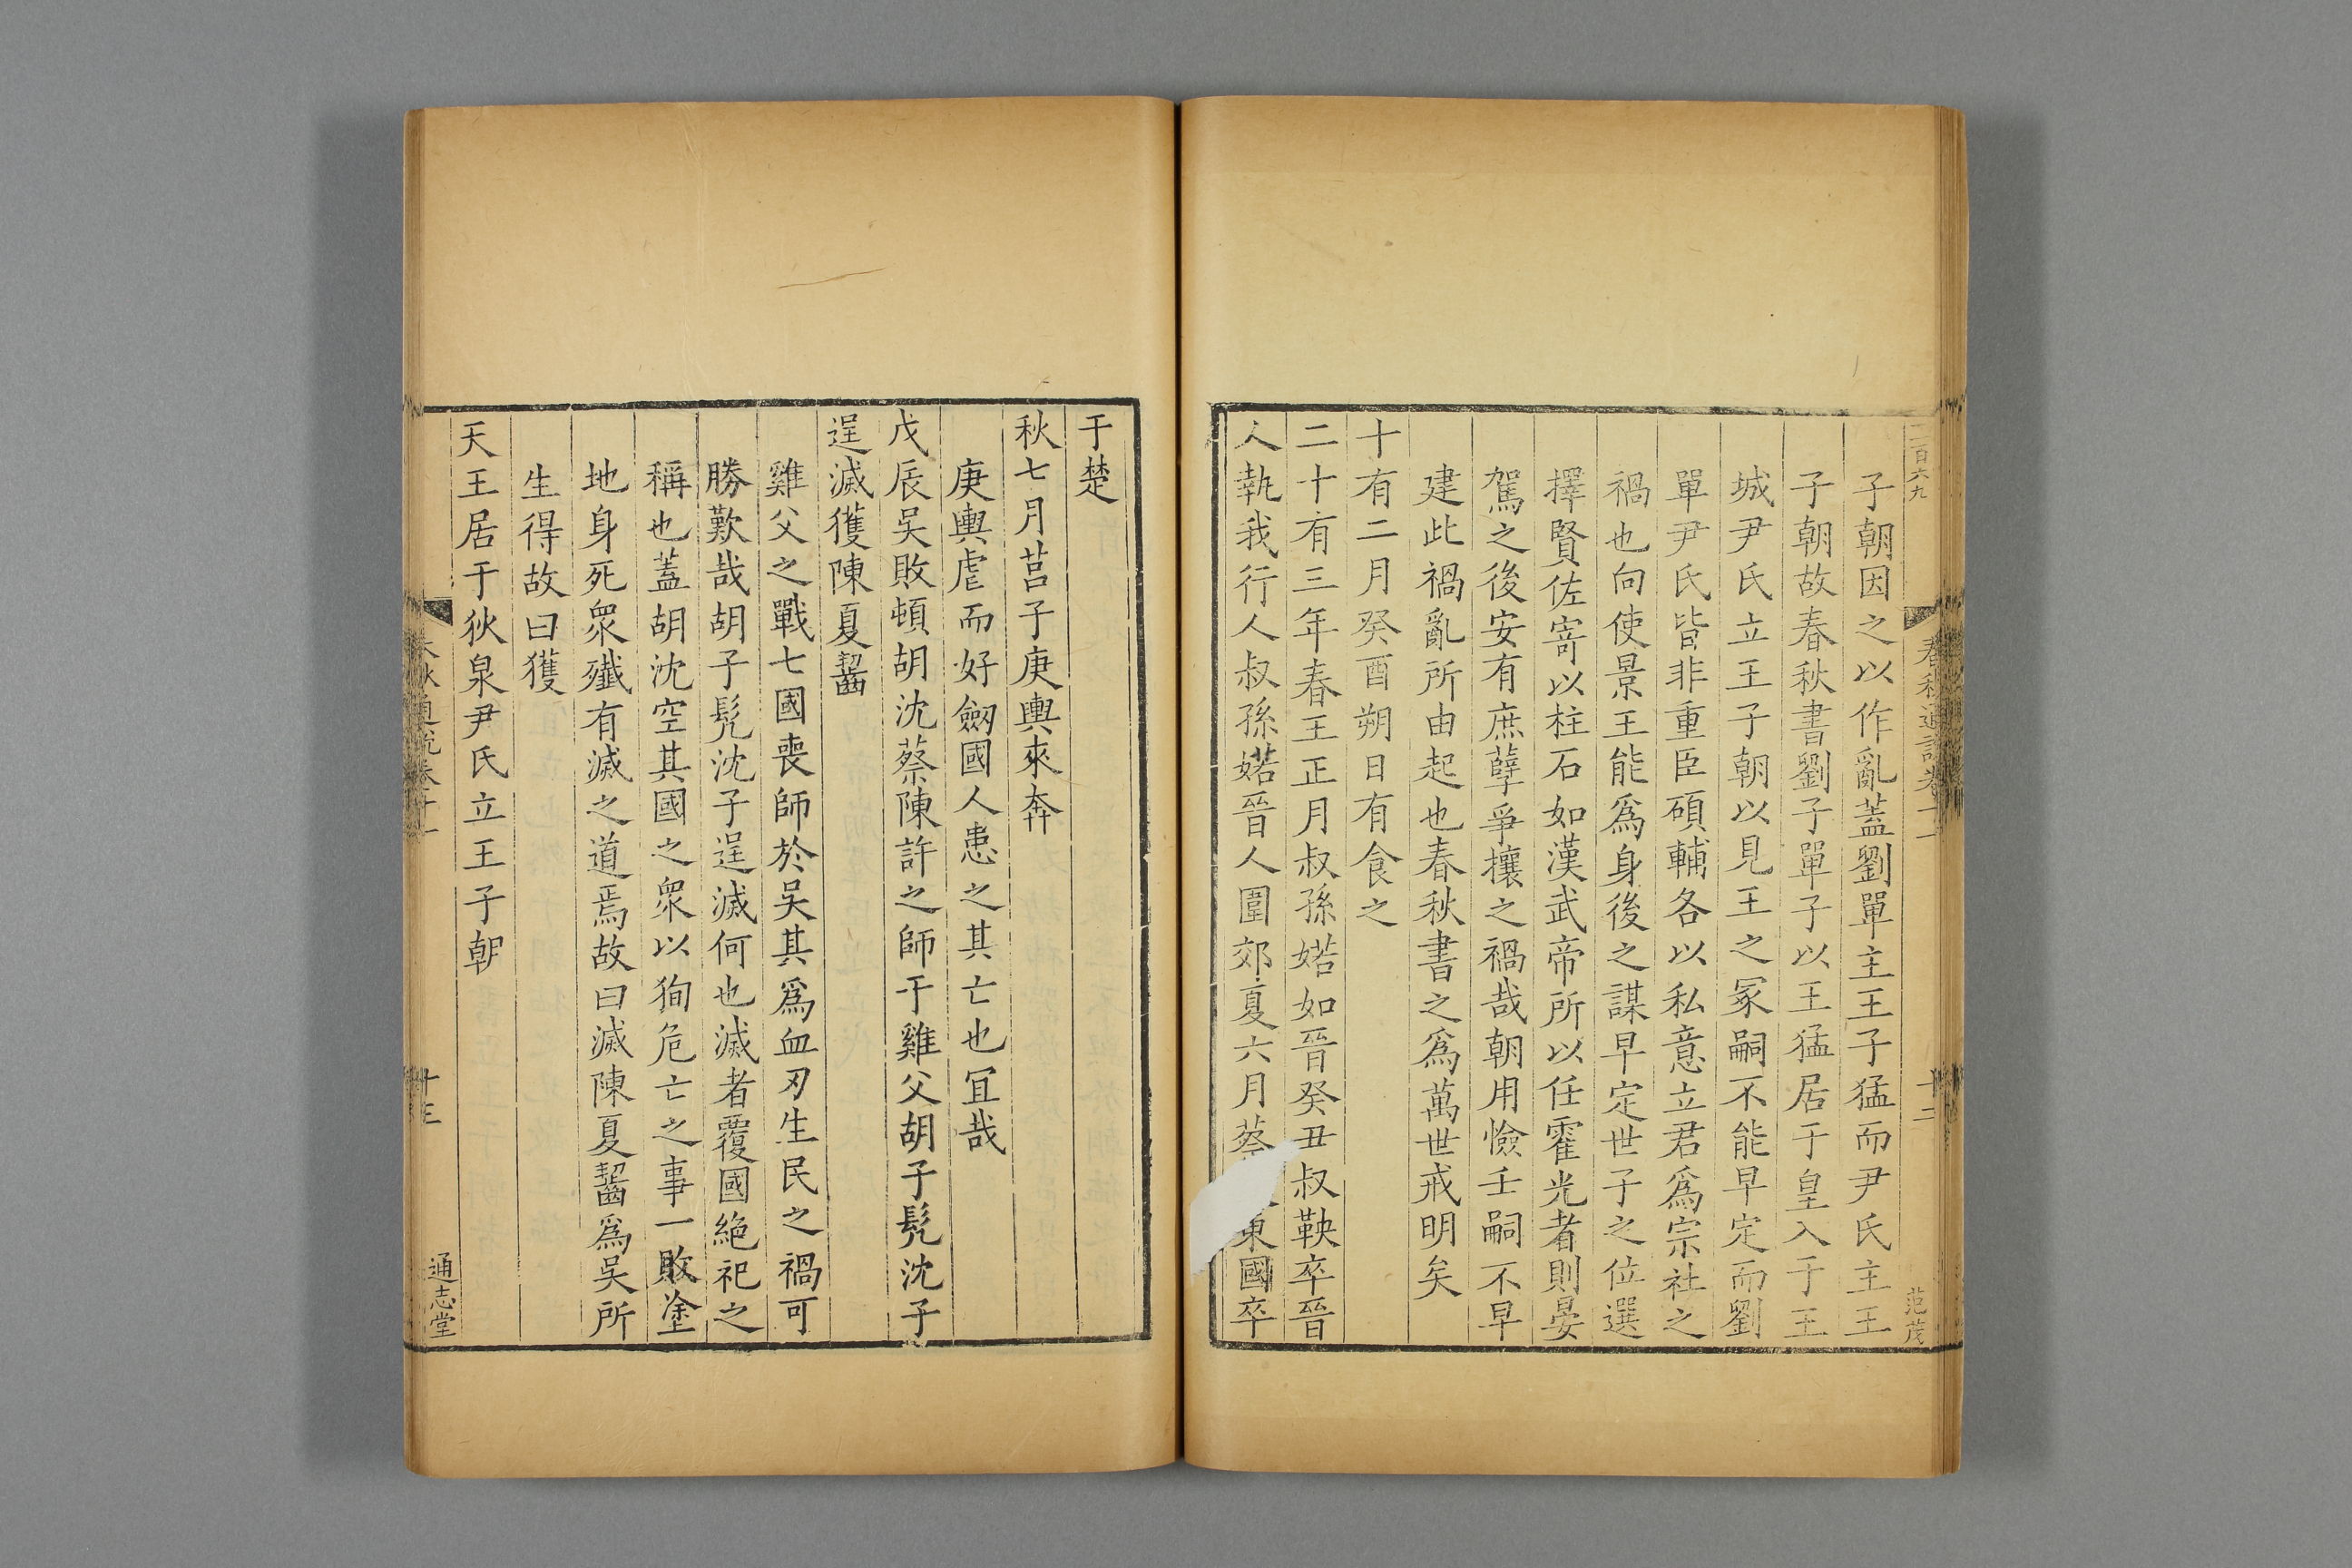 二百六九
春秋通說卷十一
十二
范茂
子朝因之以作亂蓋劉單主王子猛而尹氏主王
子朝故春秋書劉子單子以王猛居于皇入于王
城尹氏立王子朝以見王之冢嗣不能早定而劉
單尹氏皆非重臣碩輔各以私意立君爲宗社之
禍也向使景王能爲身後之謀早定世子之位選
擇賢佐寄以柱石如漢武帝所以任霍光者則晏
駕之後安有庶孽爭攘之禍哉朝用憸壬嗣不早
建此禍亂所由起也春秋書之爲萬世戒明矣
十有二月癸酉朔日有食之
二十有三年春王正月叔孫婼如晉癸丑叔鞅卒晉
人執我行人叔孫婼晉人圍郊夏六月蔡東國卒
于楚
秋七月莒子庚輿來奔
庚輿虐而好劒國人患之其亡也冝哉
戊辰吳敗頓胡沈蔡陳許之師于雞父胡子髡沈子
逞滅獲陳夏齧
雞父之戰七國喪師於吳其爲血刃生民之禍可
勝歎哉胡子髡沈子逞滅何也滅者覆國絶祀之
稱也蓋胡沈空其國之衆以狥危亡之事一敗塗
地身死衆殲有滅之道焉故曰滅陳夏齧爲吳所
生得故曰獲
天王居于狄泉尹氏立王子朝
春秋通說卷十一
十三
通志堂